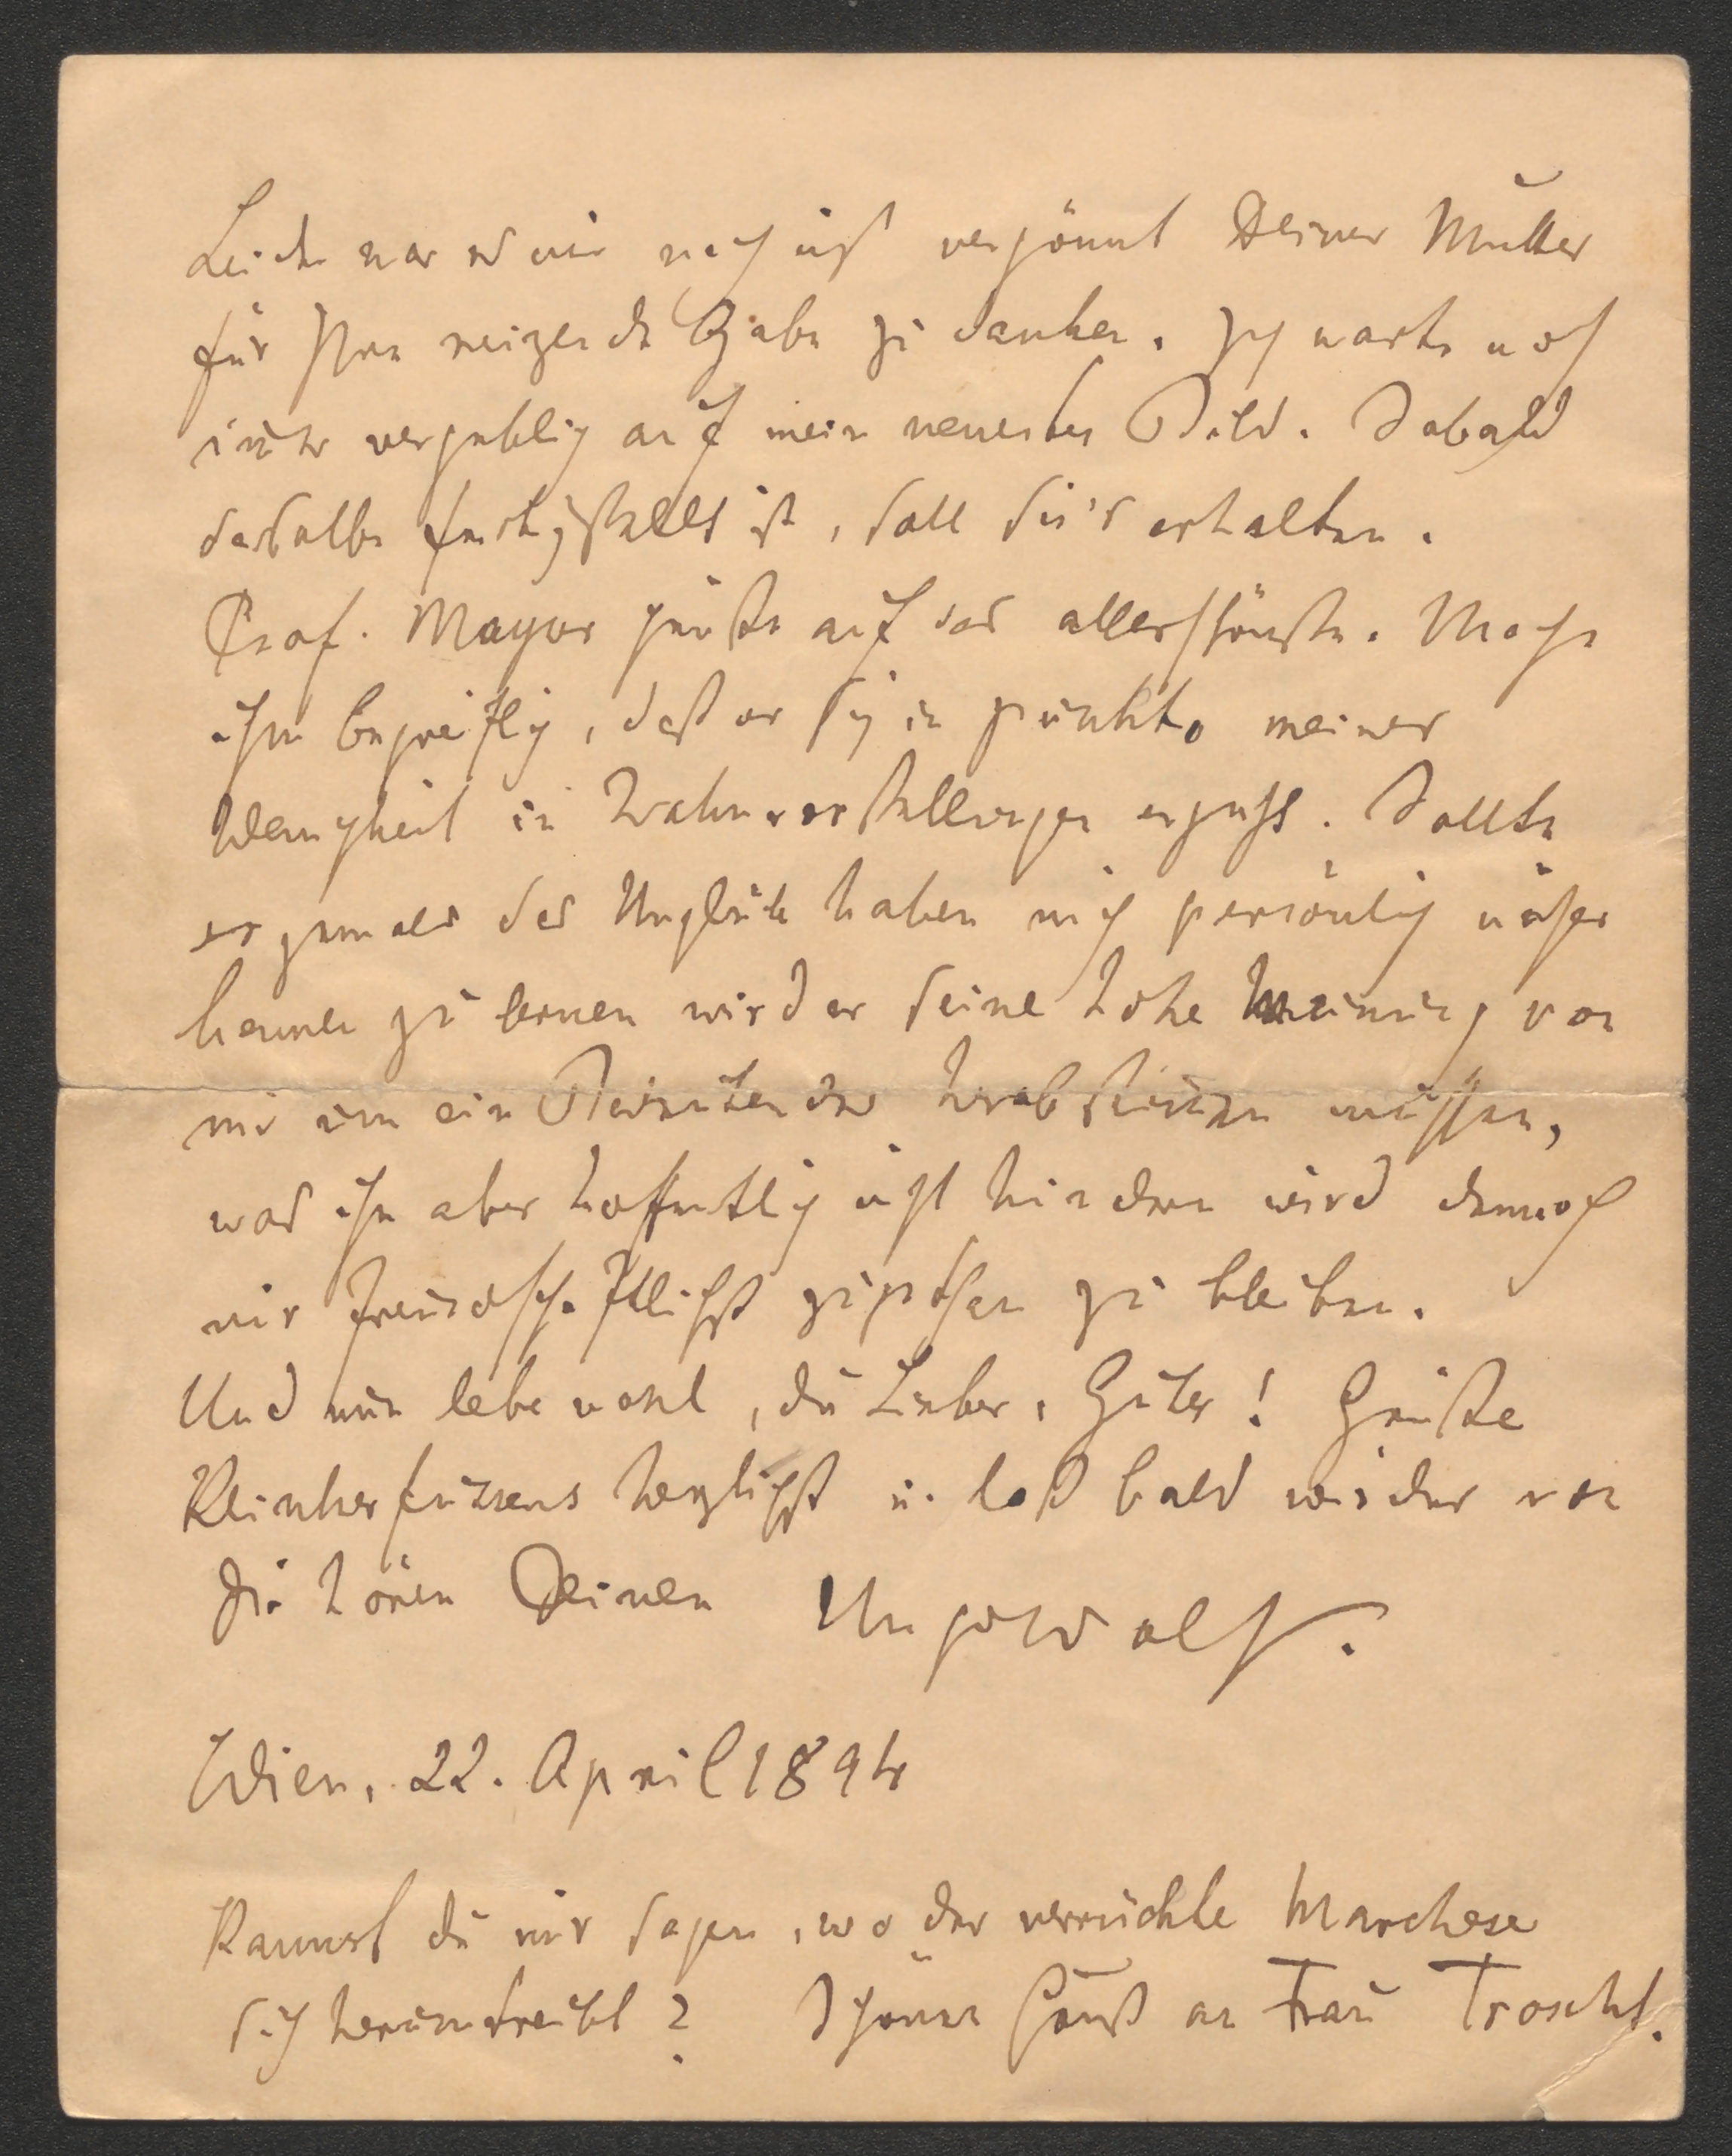 Leider war es mir noch nicht vergönnt Deiner Mutter
für Ihre reizende Gabe zu danken. Ich warte noch
immer vergeblich auf mein neuestes Bild. Sobald
dasselbe fertiggestellt ist, soll sie's erhalten.
Prof. Mayor grüße auf das allerschönste. Mache
ihm begreiflich, daß er sich in punkto meiner
Wenigkeit in Wahnvorstellungen ergeht. Sollte
er jemals das Unglück haben mich persönlich näher
kennen zu lernen wird er seine hohe Meinung von
mir um ein Bedeutendes herabstimmen müssen,
was ihn aber hoffentlich nicht hindern wird dennoch
mir freundschaftlichst zugethan zu bleiben.
Und nun lebe wohl, du Lieber, Guter! Grüße
herzlichst u. laß bald wieder von
Dir hören Deinen
Wien, 22. April 1894
Kannst du mir sagen, wo der verrückte Marchese
sich herumtreibt? Schönen Gruß an Frau